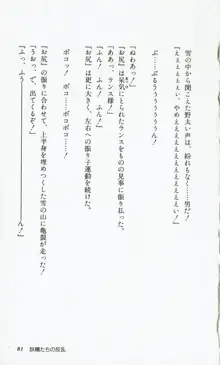 雪の中から聞こえた野太い声は、紛れもなく……男だ!
「ええええええい、やめええええええええい!」
ぷ、ぷるぅうううううううん!
「ぬわあっ!」
『お尻』は呆気にとられたランスをものの見事に振り払った。
「ああっ、ランス様!」
「ふん! ふん! ふん!」
『お尻』は更に大きく、左右への振り子運動を続けた。
ボコッ! ボコボコ……!
『お尻』の動きに合わせて、上半身を埋めつくした雪の山に亀裂が走った。
「うおっ、で、出てくるぞ!」
「ふっ、ふぅ————————ん!」
81 妖精たちの反乱